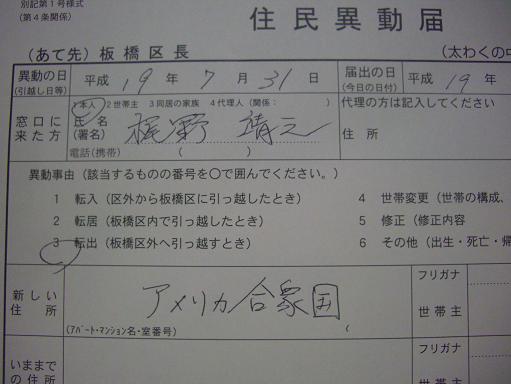 別記第1号様式
(第4条関係)
住民異動届
(あて先) 板橋区長
(太わくの中
異動の日
(引越し日等)
平成 19 年 7 月 31 日
届出の日
(今日の日付)
平成 19 年
窓口に
来た方
1本人 2世帯主 3同居の家族 4代理人 (関係: )
氏名
(署名)
梶野 靖之
電話(携帯) ( )
代理の方は記入してください
住所
異動事由 (該当するものの番号を○で囲んでください。)
1 転入 (区外から板橋区に引っ越したとき)
4 世帯変更 (世帯の構成、
2 転居 (板橋区内で引っ越したとき)
5 修正 (修正内容
3 転出 (板橋区外へ引っ越すとき)
6 その他 (出生・死亡・帰
新しい
住所
アメリカ合衆国
(アパート・マンション名・室番号) (
フリガナ
世帯主
いままで
の住所
フリガナ
世帯主